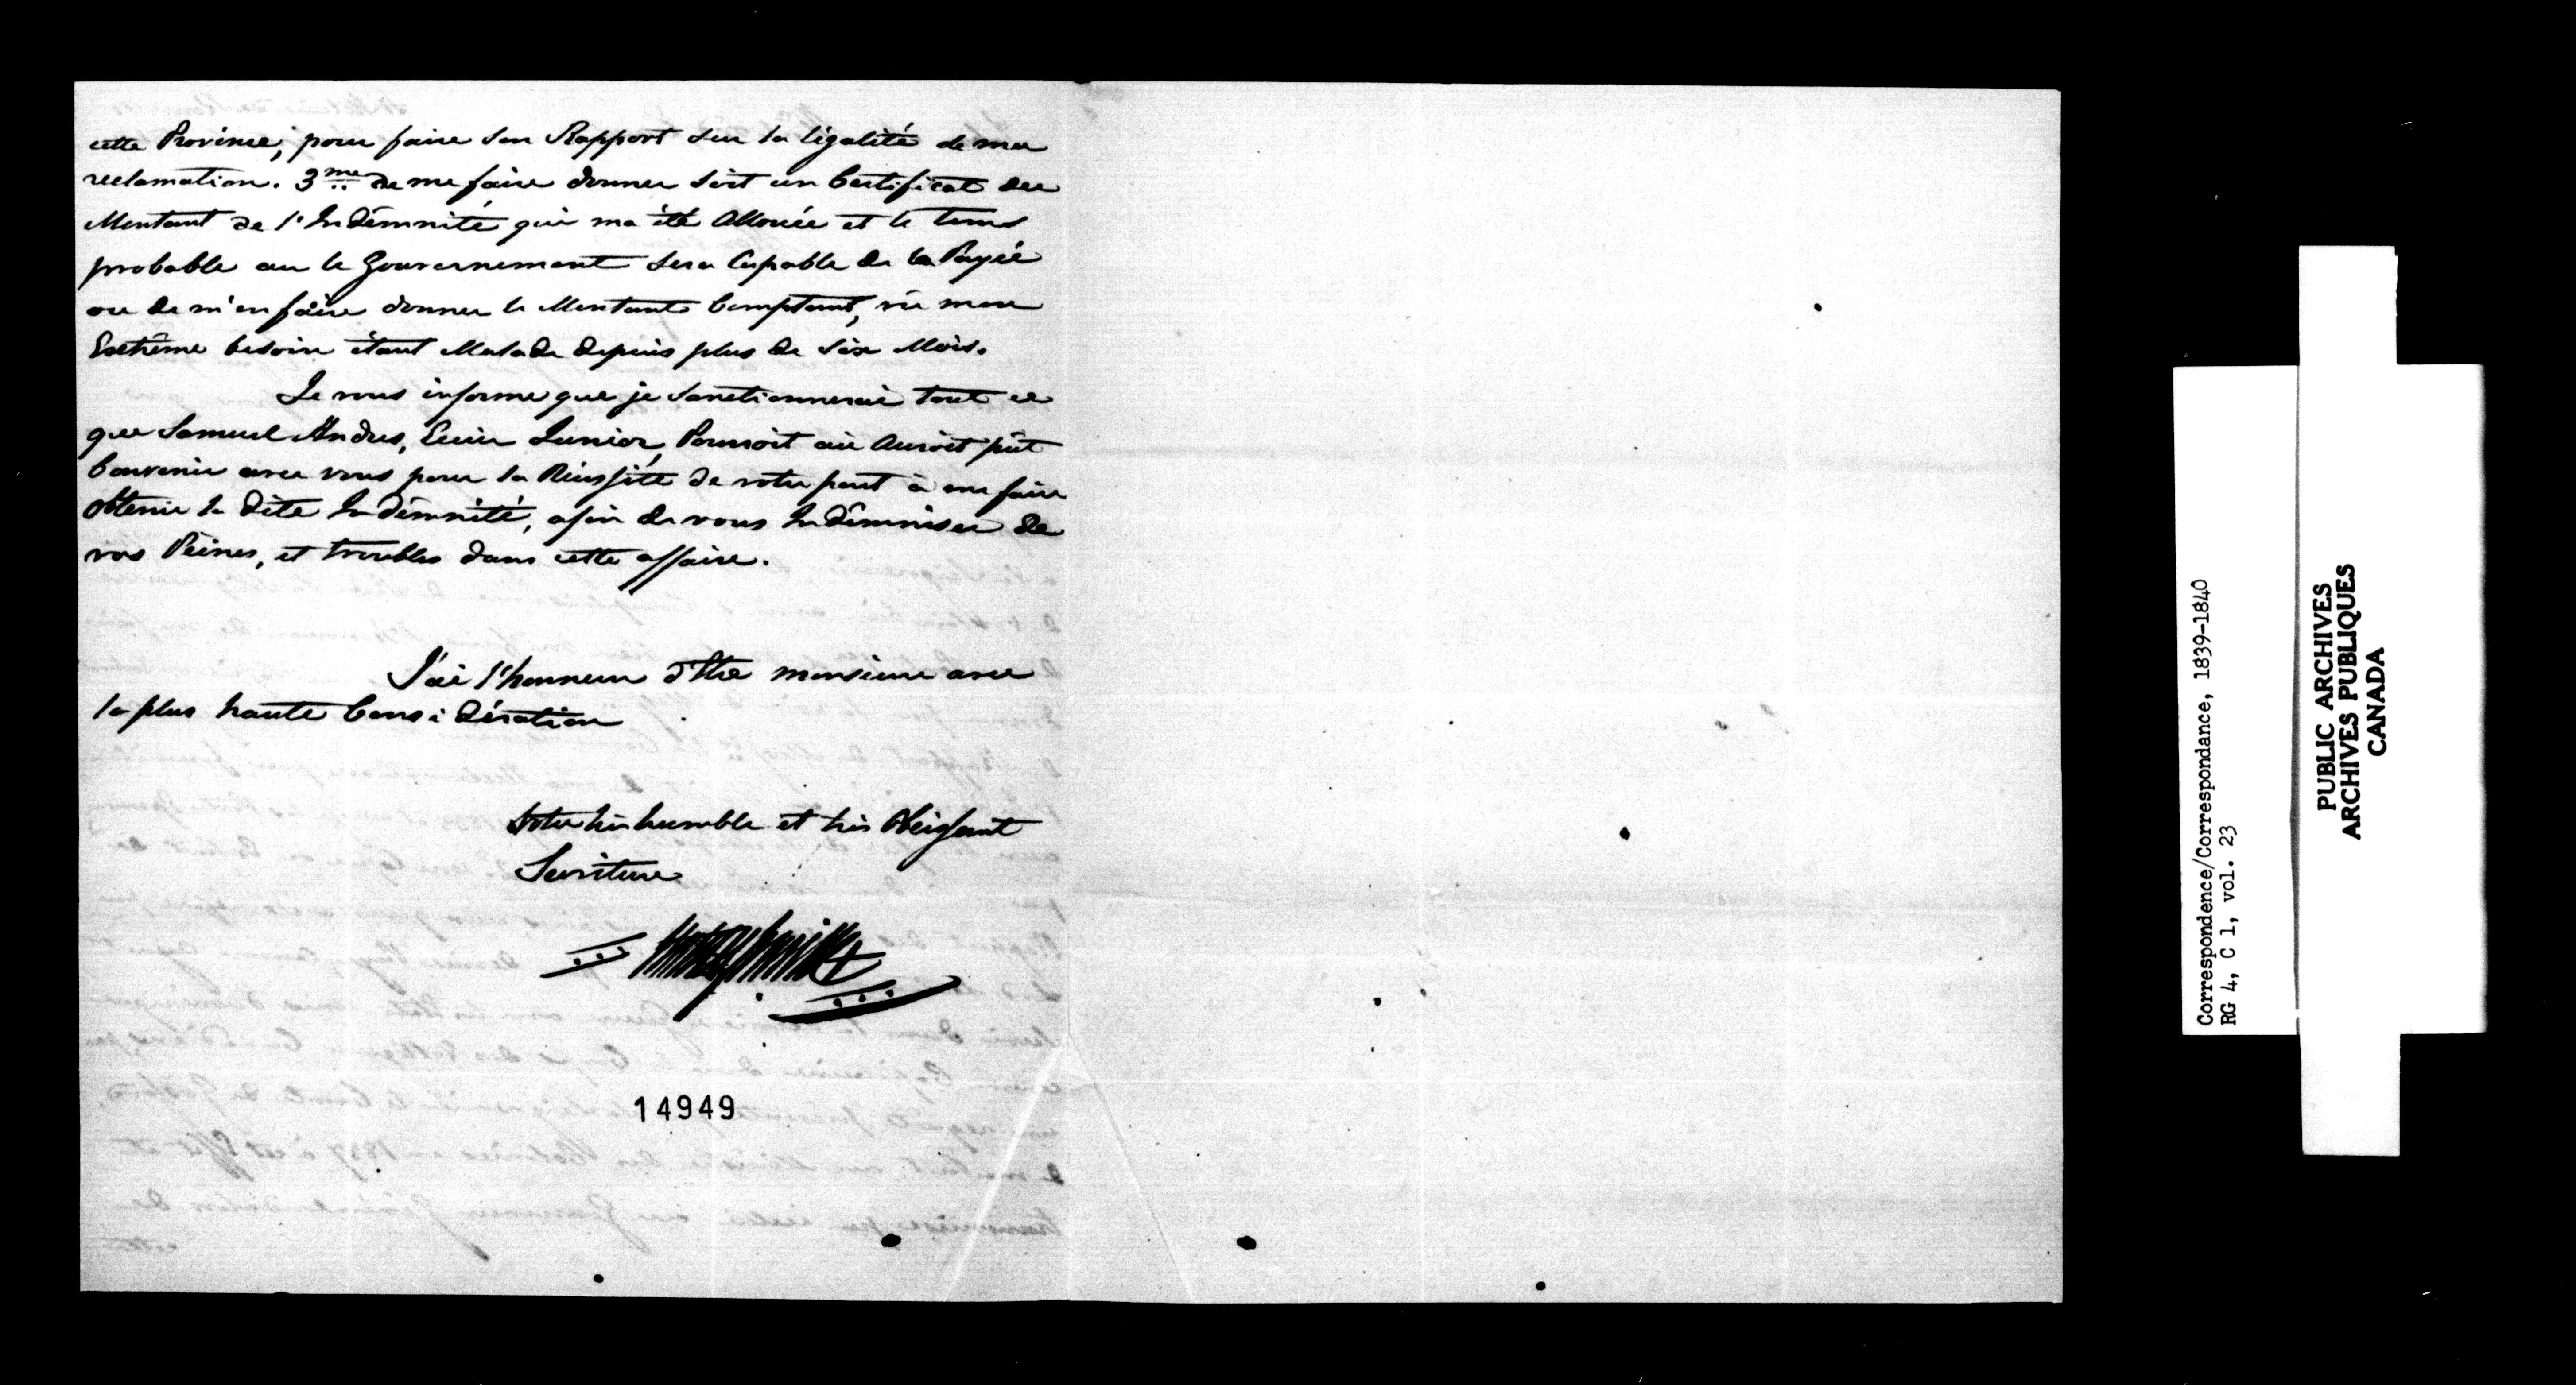 cette Province, pour faire son Rapport sur la légalité de ma
reclamation. 3me de me faire donner soit un Certificat du
Montant de l'Indémnité qui ma été Allouée et le tems
probable ou le Gouvernement sera Capable de la Payié
ou de m'en faire donner le Montant Comptant, vû mon
Extrême besoin étant Malade depuis plus de six Mois.
Je vous informe que je sanctionnerai tout ce
que Samuel Andres, Junior, Pourroit où Auroit pût
Convenir avec vous pour la Réussite de votre part à me faire
Obtenir la dite Indémnité, afin de vous Indémniser de
vos Peines, et troubles dans cette affaire.
J'ai l'honneur d'Etre monsieur avec
la plus haute Considération
Votre très humble et très Obeissant
Serviteur
14949
Correspondence/Correspondance, 1839-1840
RG 4, C 1, vol. 23
PUBLIC ARCHIVES
ARCHIVES PUBLIQUES
CANADA